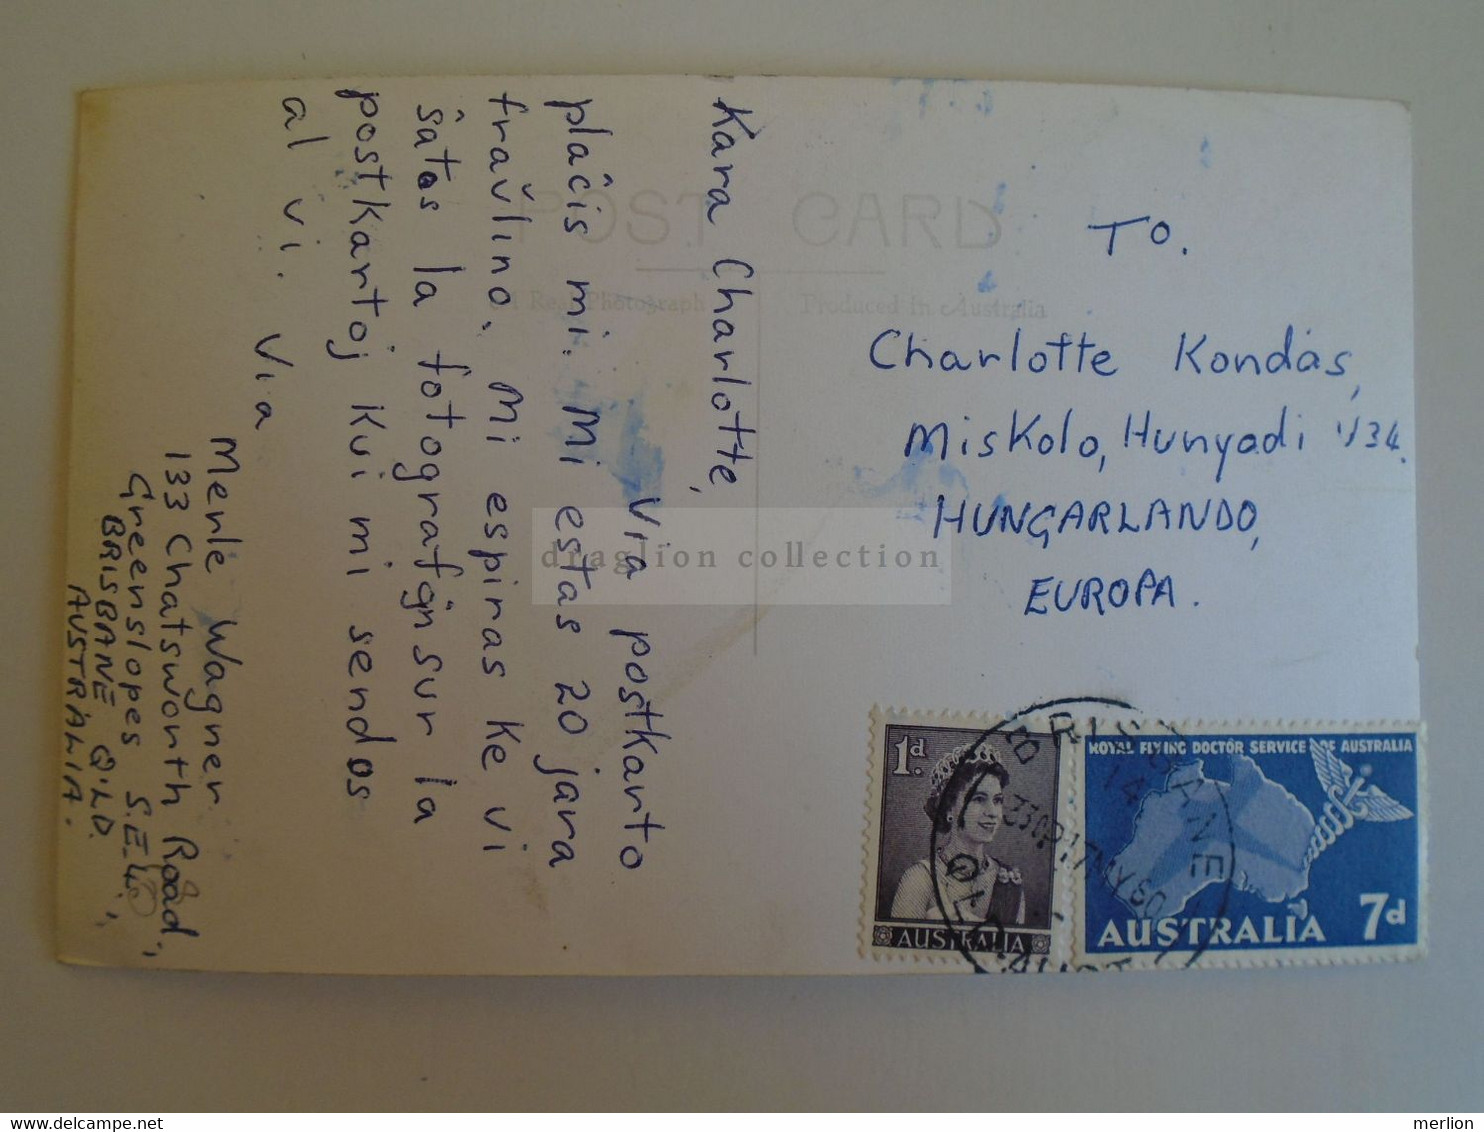 Kara Charlotte,
Via postkarto
plaĉis mi. Mi estas 20 jara
fraŭlino. Mi espiras ke vi
ŝatos la fotografojn sur la
postkartoj kui mi sendos
al vi. Via
Merle Wagner.
133 Chatsworth Road,
Greenslopes S.E.4.,
BRISBANE Q'LD.
AUSTRALIA.
POST CARD
A Real Photograph
Produced In Australia
TO.
Charlotte Kondás,
Miskolo, Hunyadi 1/34.
HUNGARLANDO,
EUROPA.
draglion collection
1d.
AUSTRALIA
ROYAL FLYING DOCTOR SERVICE OF AUSTRALIA
AUSTRALIA 7d
BRISBANE
14
230P 17MY60
QLD. AUST
merlion